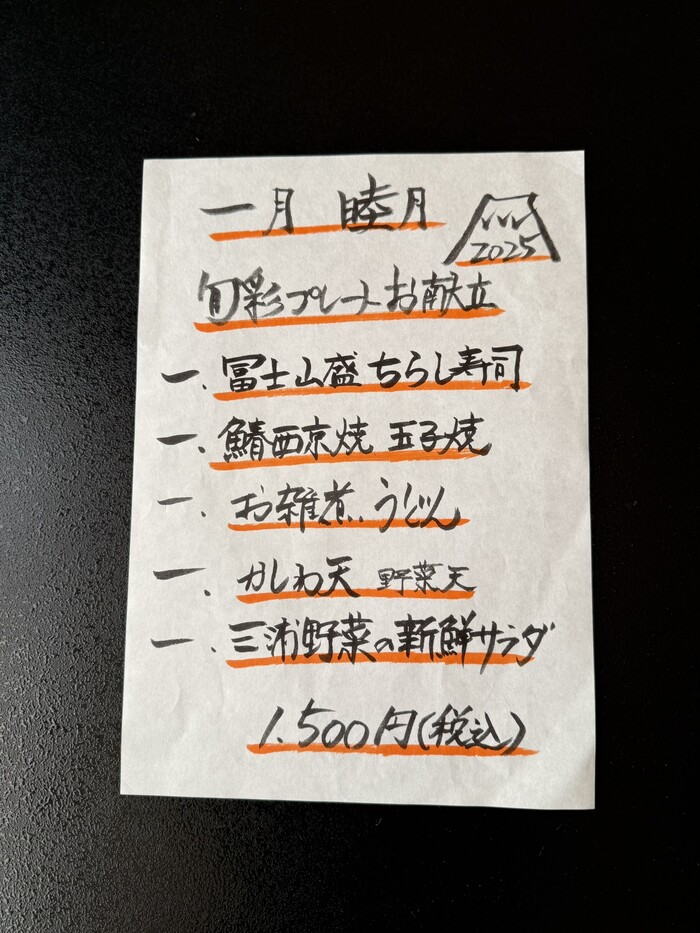 一月 睦月
2025
旬彩プレートお献立
一、冨士山盛ちらし寿司
一、鰆西京焼 玉子焼
一、お雑煮、うどん
一、かしわ天 野菜天
一、三浦野菜の新鮮サラダ
1,500円(税込)